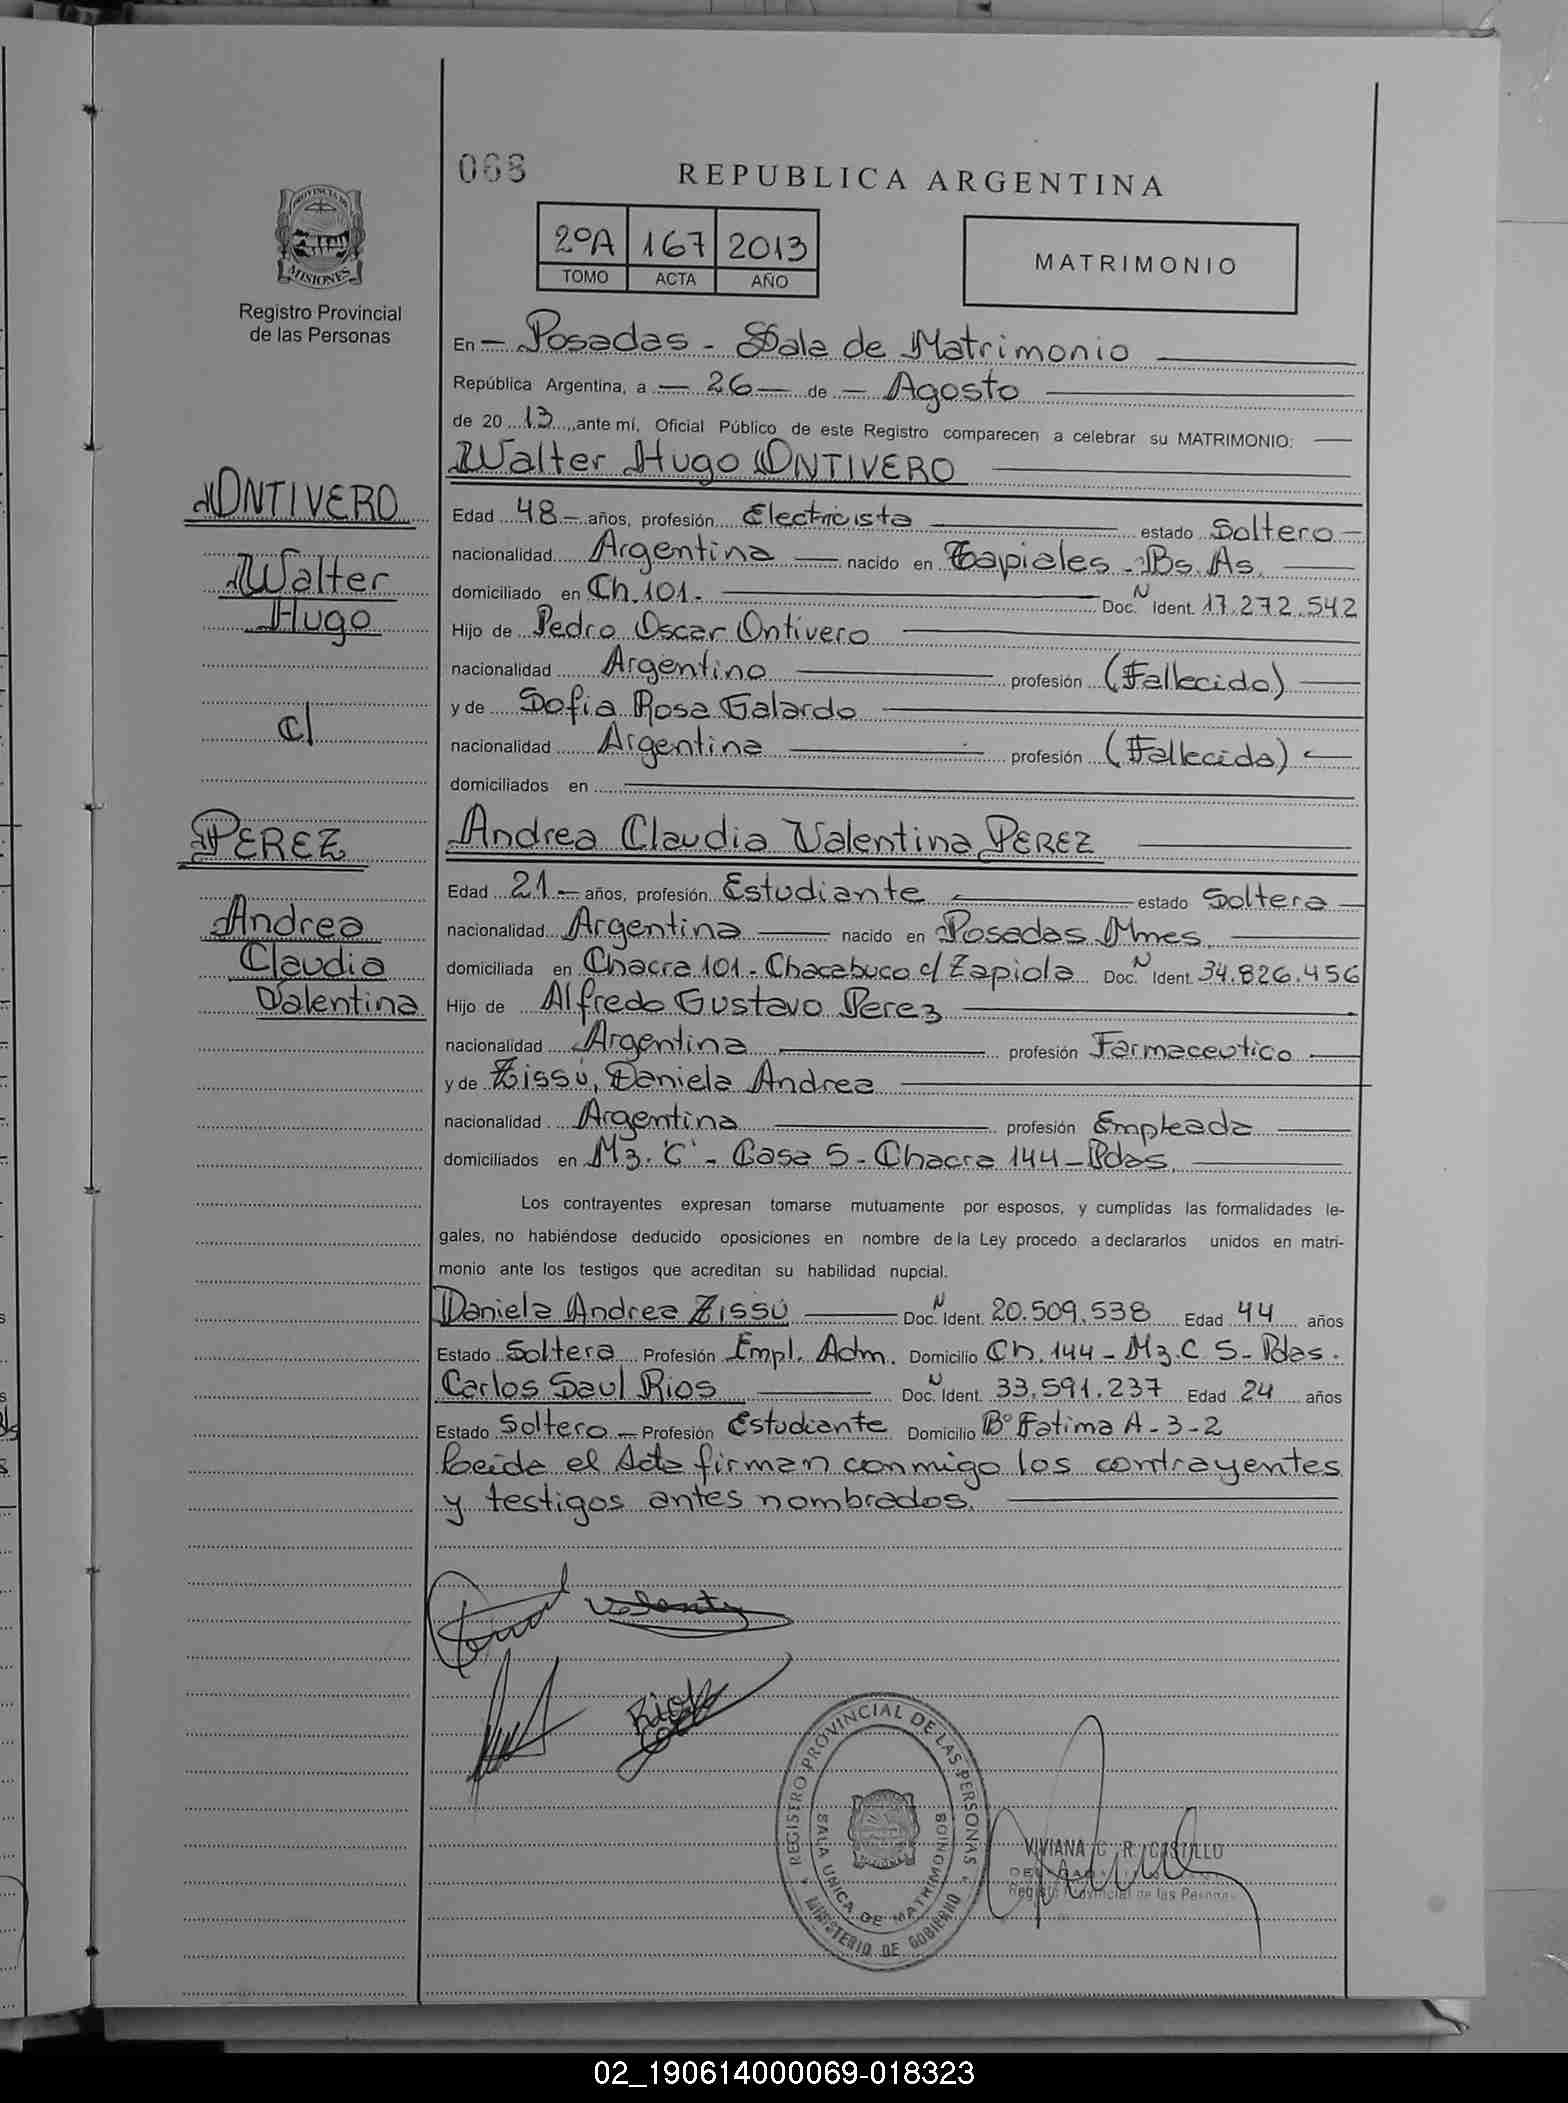 068
REPUBLICA ARGENTINA
2ºA 167 2013
TOMO ACTA AÑO
MATRIMONIO
PROVINCIA DE
MISIONES
Registro Provincial
de las Personas
En - Posadas - Sala de Matrimonio
República Argentina, a - 26 - de - Agosto
de 20 13 ,ante mí, Oficial Público de este Registro comparecen a celebrar su MATRIMONIO:
Walter Hugo ONTIVERO
ONTIVERO
Walter
Hugo
c/
PEREZ
Andrea
Claudia
Valentina
Edad 48 - años, profesión Electricista estado Soltero -
nacionalidad Argentina nacido en Tapiales - Bs. As.
domiciliado en Ch. 101. Doc. N Ident. 17.272.542
Hijo de Pedro Oscar Ontivero
nacionalidad Argentino profesión (Fallecido)
y de Sofia Rosa Galardo
nacionalidad Argentina profesión (Fallecida)
domiciliados en
Andrea Claudia Valentina PEREZ
Edad 21 - años, profesión Estudiante estado Soltera
nacionalidad Argentina nacido en Posadas Mnes.
domiciliada en Chacra 101 - Chacabuco c/ Zapiola Doc. N Ident. 34.826.456
Hijo de Alfredo Gustavo Perez
nacionalidad Argentina profesión Farmaceutico
y de Zissú, Daniela Andrea
nacionalidad Argentina profesión Empleada
domiciliados en Mz. 'C' - Casa 5 - Chacra 144 - Pdas.
Los contrayentes expresan tomarse mutuamente por esposos, y cumplidas las formalidades le-
gales, no habiéndose deducido oposiciones en nombre de la Ley procedo a declararlos unidos en matri-
monio ante los testigos que acreditan su habilidad nupcial.
Daniela Andrea Zissú Doc. N Ident. 20.509.538 Edad 44 años
Estado Soltera Profesión Empl. Adm. Domicilio Ch. 144 - Mz. C 5 - Pdas.
Carlos Saul Rios Doc. N Ident. 33.591.237 Edad 24 años
Estado Soltero - Profesión Estudiante Domicilio Bº Fatima A - 3 - 2
Leida el Acta firman conmigo los contrayentes
y testigos antes nombrados.
REGISTRO PROVINCIAL DE LAS PERSONAS
SALA UNICA DE MATRIMONIOS
MINISTERIO DE GOBIERNO
VIVIANA C. R. CASTILLO
Registro Provincial de las Personas
02_190614000069-018323